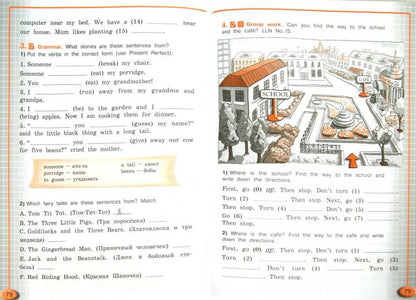 computer near my bed. We have a (14) near
our house. Mum likes planting (15) .
3. Grammar. What stories are these sentences from?
1) Put the verbs in the correct form (use Present Perfect).
1. Someone (break) my chair.
Someone (eat) my porridge.
2. You (eat) my grandmother!
3. I (run) away from my grandma and
grandpa.
4. I (be) to the garden and I
(bring) apples. Now I am cooking them for dinner.
5. " you (guess) my name?"
said the little black thing with a long tail.
6. " you (give) away our cow
for five beans?" cried the mother.
someone — кто-то
porridge — каша
to guess — угадывать
a tail — хвост
beans — бобы
2) Which fairy tales are these sentences from? Match.
A. Tom Tit Tot. (Том-Тит-Тот) 5
B. The Three Little Pigs. (Три поросёнка)
C. Goldilocks and the Three Bears. (Златовласка и три
медведя)
D. The Gingerbread Man. (Пряничный человечек)
E. Jack and the Beanstalk. (Джек и бобовый сте-
бель)
F. Red Riding Hood. (Красная Шапочка)
78
4. Group work. Can you find the way to the school
and the café? LLN No.15.
SCHOOL
CAFÉ
1) Where is the school? Find the way to the school and
write down the directions.
First, go (0) up. Then stop. Don't turn (1) .
Turn (2) . Then stop. Next, go (3) .
Then stop. Turn (4) . Don't turn (5) .
Go (6) . Then stop. Next, go (7) .
Then stop.
2) Where is the café? Find the way to the café and write
down the directions.
First, go (0) up. Then stop. Turn (1) .
Then stop. Next, go (2) . Then stop. Turn (3)
. Don't turn (4) . Turn (5) .
Then stop.
79